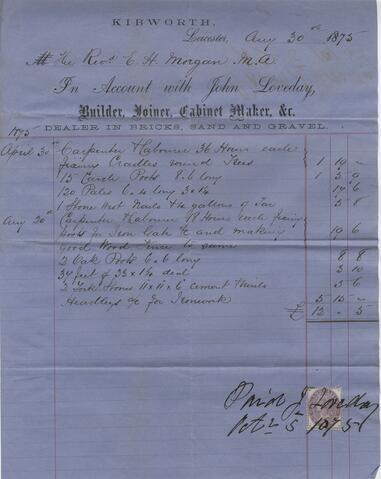 KIBWORTH,
Leicester, Aug 30th 1875
The Revd E. H. Morgan M.A
In Account with John Loveday,
Builder, Joiner, Cabinet Maker, &c.
DEALER IN BRICKS, SAND AND GRAVEL.
1875
April 30th Carpenter & labourer 36 Hours each
fixing Cradles round Trees 1 10 -
115 Cradle Posts 8.6 long 1 3 0
120 Pales 6.4 long 3 x 1/4 14 6
1 Stone Wrot Nails & 4 gallons of Tar 5 8
Aug 20th Carpenter & labourer 18 Hours each fixing
posts for Iron Gate &c and making 1 10 6
good Wood Fence to same
2 Oak Posts 6.6 long 8 8
34 feet of 3 x 1/4 deal 3 10
2 York Stones 11 x 11 x 6 cement 5 6
Headleys &c for Ironwork 5 15 -
£ 12 - 5
Paid J Loveday
Oct 5 1875